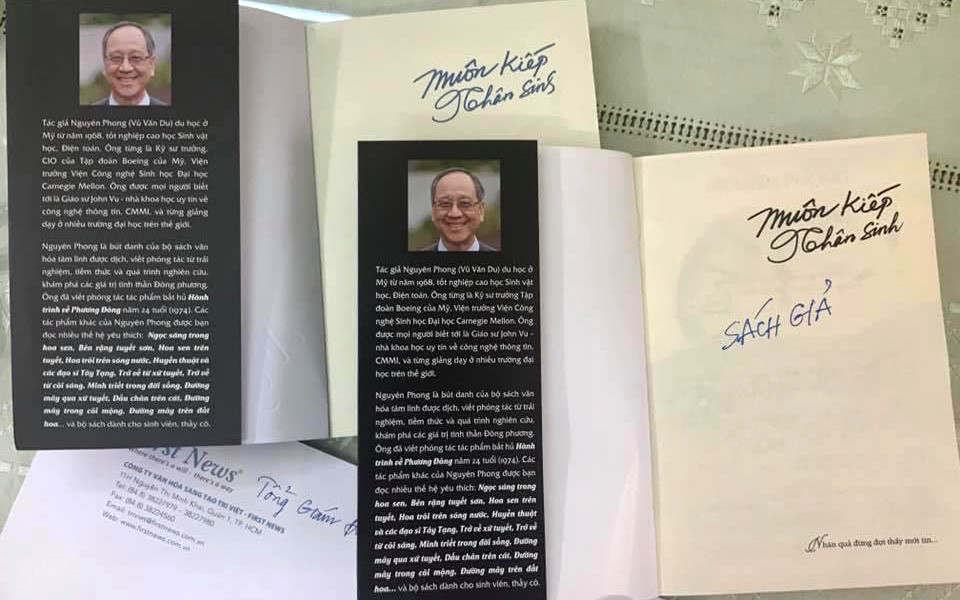 Muôn Kiếp
Nhân Sinh
Tác giả Nguyên Phong (Vũ Văn Du) du học ở
Mỹ từ năm 1968, tốt nghiệp cao học Sinh vật
học, Điện toán. Ông từng là Kỹ sư trưởng,
CIO của Tập đoàn Boeing của Mỹ, Viện
trưởng Viện Công nghệ Sinh học Đại học
Carnegie Mellon. Ông được mọi người biết
tới là Giáo sư John Vu - nhà khoa học uy tín về
công nghệ thông tin, CMMI, và từng giảng
dạy ở nhiều trường đại học trên thế giới.
Nguyên Phong là bút danh của bộ sách văn
hóa tâm linh được dịch, viết phóng tác từ trải
nghiệm, tiềm thức và quá trình nghiên cứu,
khám phá các giá trị tinh thần Đông phương.
Ông đã viết phóng tác tác phẩm bất hủ Hành
trình về Phương Đông năm 24 tuổi (1974). Các
tác phẩm khác của Nguyên Phong được bạn
đọc nhiều thế hệ yêu thích: Ngọc sáng trong
hoa sen, Bên rặng tuyết sơn, Hoa sen trên
tuyết, Hoa trôi trên sóng nước, Huyền thuật và
các đạo sĩ Tây Tạng, Trở về từ xứ tuyết, Trở về
từ cõi sáng, Minh triết trong đời sống, Đường
mây qua xứ tuyết, Dấu chân trên cát, Đường
mây trong cõi mộng, Đường mây trên đất
hoa... và bộ sách dành cho sinh viên, thầy cô.
Muôn Kiếp
Nhân Sinh
SÁCH GIẢ
Tác giả Nguyên Phong (Vũ Văn Du) du học ở
Mỹ từ năm 1968, tốt nghiệp cao học Sinh vật
học, Điện toán. Ông từng là Kỹ sư trưởng, CIO của Tập
đoàn Boeing của Mỹ, Viện trưởng Viện Công
nghệ Sinh học Đại học Carnegie Mellon. Ông
được mọi người biết tới là Giáo sư John Vu -
nhà khoa học uy tín về công nghệ thông tin,
CMMI, và từng giảng dạy ở nhiều trường đại
học trên thế giới.
Nguyên Phong là bút danh của bộ sách văn
hóa tâm linh được dịch, viết phóng tác từ trải
nghiệm, tiềm thức và quá trình nghiên cứu,
khám phá các giá trị tinh thần Đông phương.
Ông đã viết phóng tác tác phẩm bất hủ Hành
trình về Phương Đông năm 24 tuổi (1974). Các
tác phẩm khác của Nguyên Phong được bạn
đọc nhiều thế hệ yêu thích: Ngọc sáng trong
hoa sen, Bên rặng tuyết sơn, Hoa sen trên
tuyết, Hoa trôi trên sóng nước, Huyền thuật
và các đạo sĩ Tây Tạng, Trở về từ xứ tuyết, Trở về
từ cõi sáng, Minh triết trong đời sống, Đường
mây qua xứ tuyết, Dấu chân trên cát, Đường
mây trong cõi mộng, Đường mây trên đất
hoa... và bộ sách dành cho sinh viên, thầy cô.
Nhân quả đừng đợi thấy mới tin...
First News®
Where there's a will - there's a way
CÔNG TY VĂN HÓA SÁNG TẠO TRÍ VIỆT - FIRST NEWS
11H Nguyễn Thị Minh Khai, Quận 1, TP. HCM
Tel: (84.8) 38227979 - 38227980
Fax: (84.8) 38224560
Email: triviet@firstnews.com.vn
Web: www.firstnews.com.vn
Tổng Giám